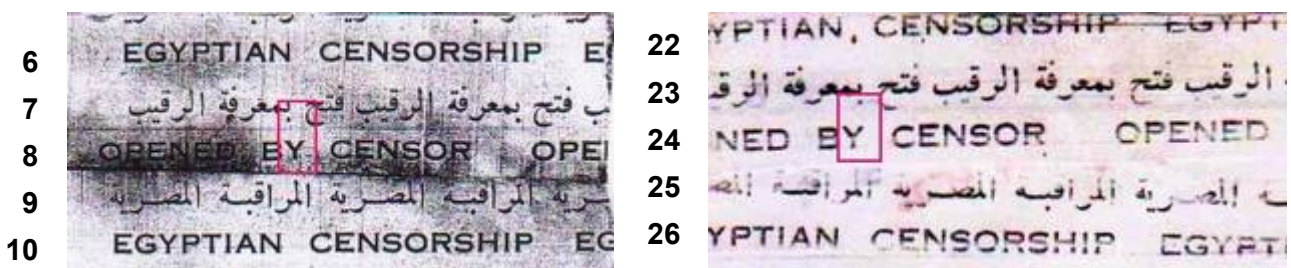 6 EGYPTIAN CENSORSHIP E
7 ب فتح بمعرفة الرقيب فتح بمعرفة الرقيب
8 OPENED BY CENSOR OPE
9 ـرية المراقبة المصرية المراقبة المصرية
10 EGYPTIAN CENSORSHIP EG
22 YPTIAN CENSORSHIP EGYPT
23 الرقيب فتح بمعرفة الرقيب فتح بمعرفة الرقـ
24 NED BY CENSOR OPENED
25 ـة المصرية المراقبة المصرية المراقبة المصـ
26 YPTIAN CENSORSHIP EGYPTI